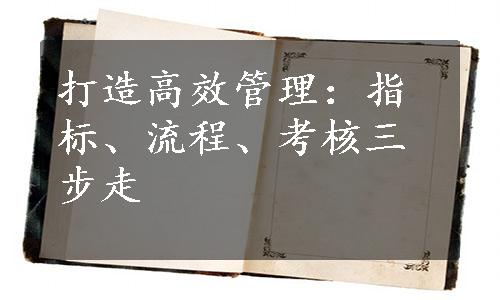 打造高效管理：指
标、流程、考核三
步走